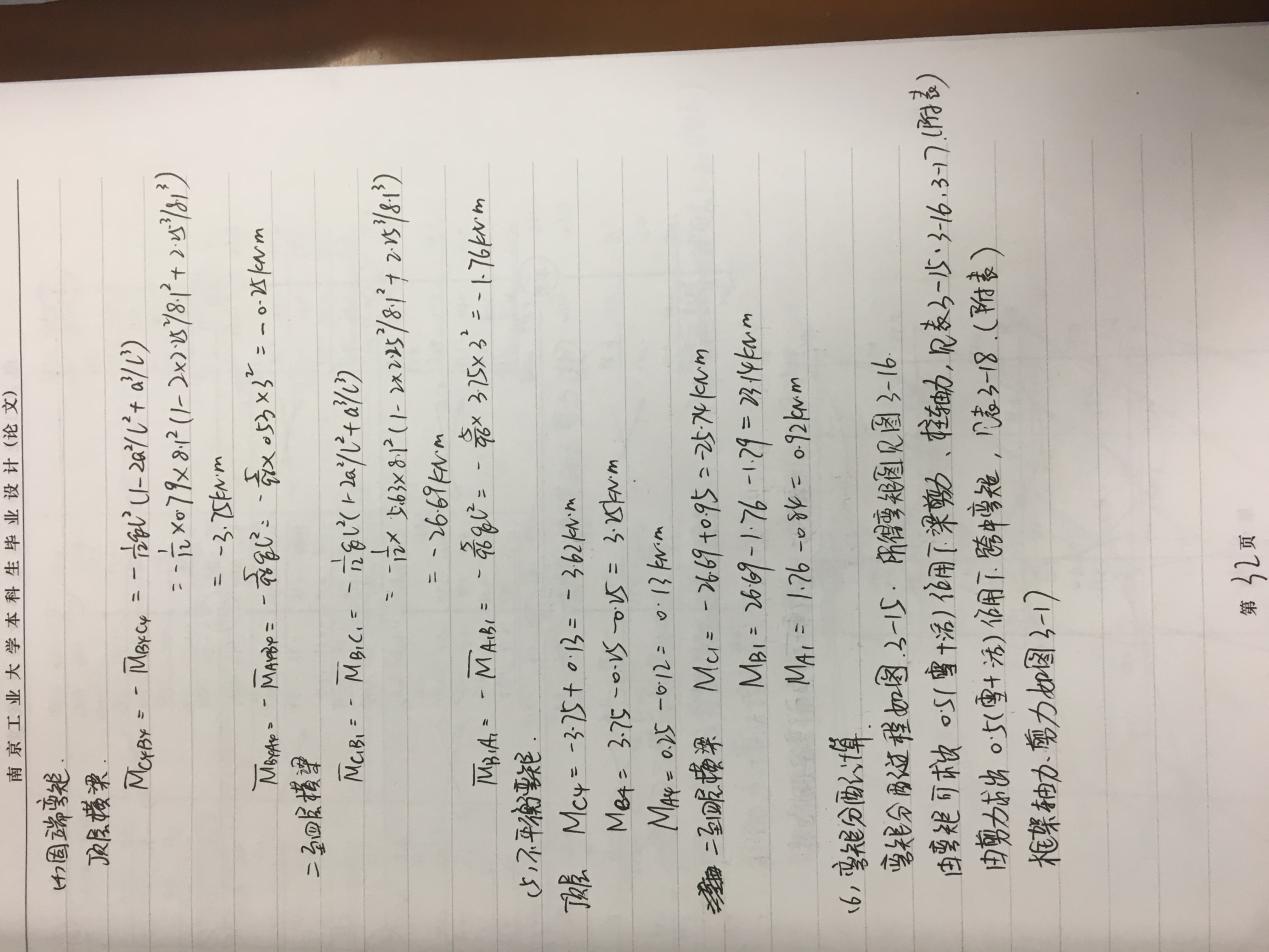 南京工业大学本科生毕业设计(论文)
(4)固端弯矩.
顶层横梁.
M̅C4B4 = -M̅B4C4 = -1/12 gl²(1-2a²/l²+a³/l³)
= -1/12 ×0.79×8.1²(1-2×2.25²/8.1²+2.25³/8.1³)
= -3.75kN·m
M̅B4A4 = -M̅A4B4 = -5/96 gl² = -5/96×0.53×3² = -0.25kN·m
二至四层横梁
M̅C1B1 = -M̅B1C1 = -1/12 gl²(1-2a²/l²+a³/l³)
= -1/12× 5.63×8.1²(1-2×2.25²/8.1²+2.25³/8.1³)
= -26.69kN·m
M̅B1A1 = -M̅A1B1 = -5/96 gl² = -5/96× 3.75×3² = -1.76kN·m
(5)不平衡弯矩.
顶层 MC4 = -3.75+0.13 = -3.62kN·m
MB4 = 3.75-0.25-0.25 = 3.25kN·m
MA4 = 0.25-0.12 = 0.13kN·m
二至四层横梁 MC1 = -26.69+0.95 = -25.74kN·m
MB1 = 26.69-1.76-1.79 = 23.14kN·m
MA1 = 1.76-0.84 = 0.92kN·m
(6)弯矩分配计算.
弯矩分配过程如图3-15. 所得弯矩图见图3-16.
由弯矩可求出 0.5(雪+活)作用下梁剪力、柱轴力,见表3-15、3-16、3-17.(附表)
由剪力求出 0.5(雪+活)作用下.跨中弯矩,见表3-18.(附表)
框架轴力.剪力如图3-17
第 32 页